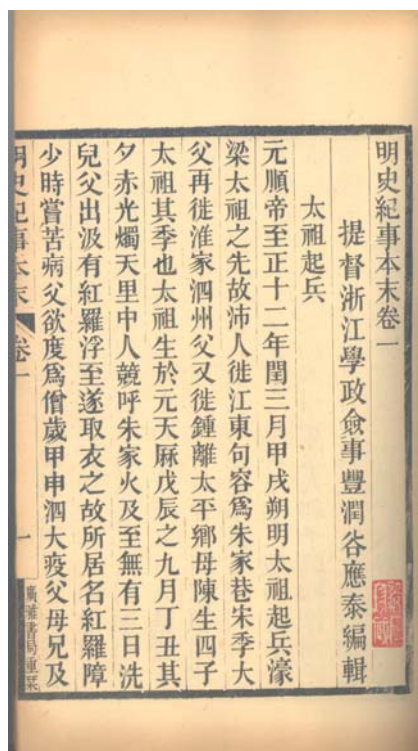 明史紀事本末卷一
提督浙江學政僉事豐潤谷應泰編輯
太祖起兵
元順帝至正十二年閏三月甲戌朔明太祖起兵濠
梁太祖之先故沛人徙江東句容爲朱家巷宋季大
父再徙淮家泗州父又徙鍾離太平鄉母陳生四子
太祖其季也太祖生於元天厤戊辰之九月丁丑其
夕赤光燭天里中人競呼朱家火及至無有三日洗
兒父出汲有紅羅浮至遂取衣之故所居名紅羅障
少時嘗苦病父欲度爲僧歲甲申泗大疫父母兄及
明史紀事本末 卷一 一
廣雅書局